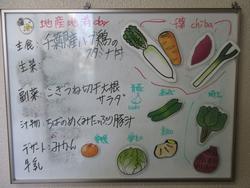 地産地消day
千葉 chiba
主食 千葉産ハーブ鶏の
主菜 スタミナ丼
副菜 こぎつね切干大根
サラダ
汁物 ちばのめぐみたっぷり豚汁
デザート みかん
牛乳